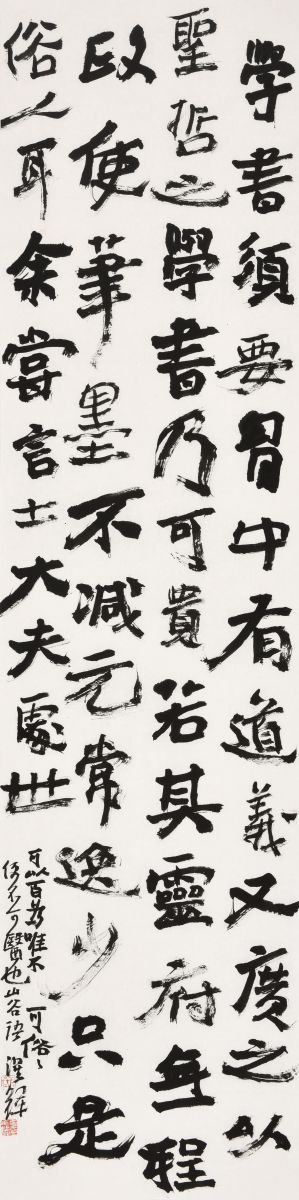 学書須要胷中有道義又廣之以
聖哲之學書乃可貴若其靈府無程
政使筆墨不減元常逸少只是
俗人耳余嘗言士大夫處世
可以百為唯不可俗〻
便不可醫也山谷語